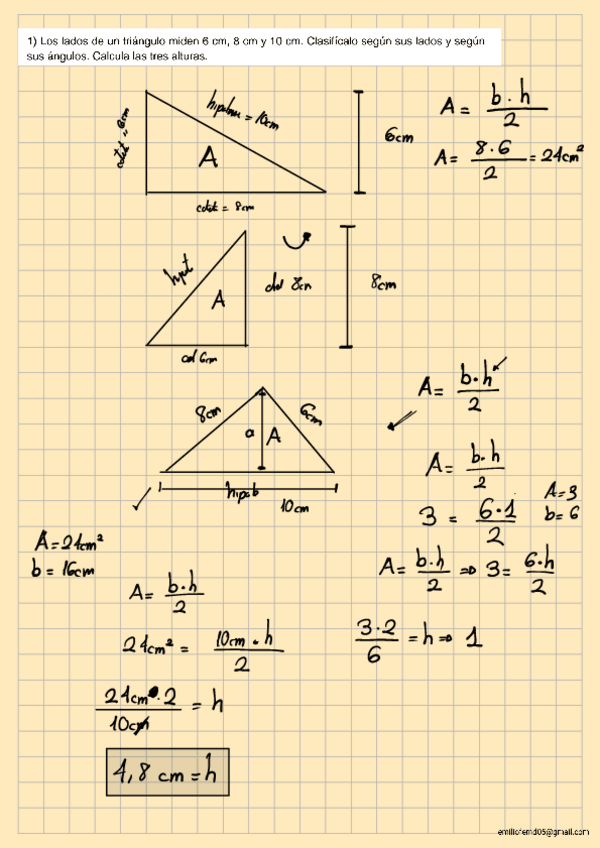 1) Los lados de un triángulo miden 6 cm, 8 cm y 10 cm. Clasifícalo según sus lados y según
sus ángulos. Calcula las tres alturas.
hipotenusa = 10cm
catet = 6cm
A
catet = 8cm
6cm
A = b·h/2
A = 8·6/2 = 24cm²
hipot
A
8cm
cat 6cm
8cm
8cm
6cm
a
A
10cm
A = b·h/2
A = b·h/2
3 = 6·1/2
A=3
b=6
A = b·h/2 ⇒ 3 = 6·h/2
3·2/6 = h ⇒ 1
A = 24cm²
b = 10cm
A = b·h/2
24cm² = 10cm·h/2
24cm·2/10cm = h
4,8 cm = h
emiliofernd05@gmail.com